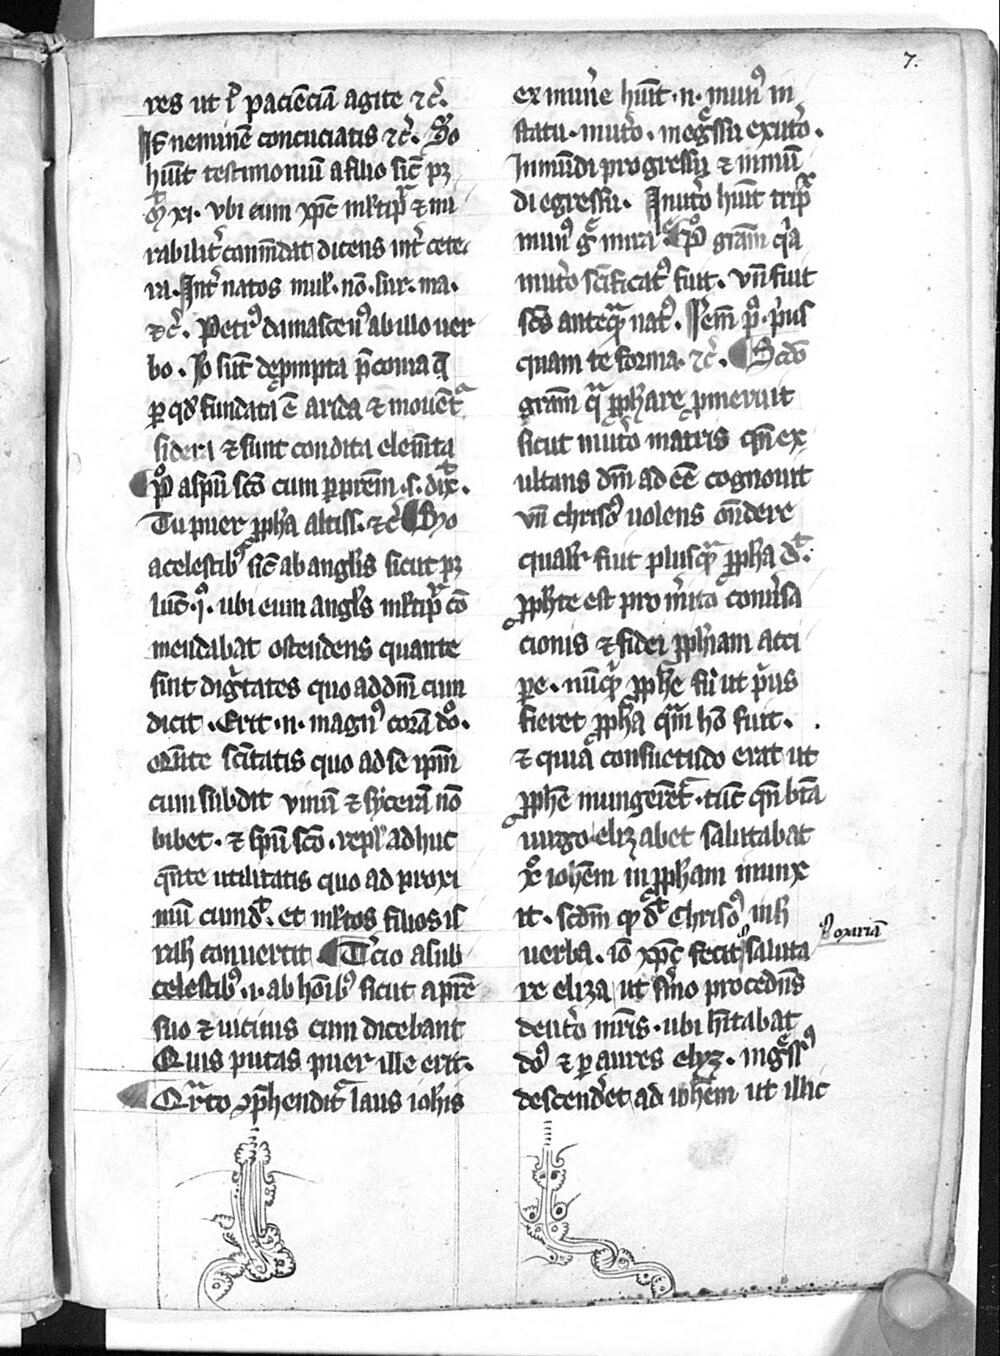 7.
res ut l' paciēciā agite ⁊c̄.
neminē concuciatis ⁊c̄. Sc̄do
hūit testimoniū a filio sic̄ pꝫ
xi. vbi eum xp̄c mͣltiplr̄ ⁊ mi
rabilit̄ cōmēdat dicens int̄ cete
ra. Int̄ natos mul'. nō. sur. ma.
⁊c̄. Petrꝰ damascenꝰ ab illo uer
bo. Io sūt dep̄mpta p̄conia
ꝑ qd̄ fundata ē arida ⁊ mouēt̄
sidera ⁊ sunt condita elem̄ta
a sp̄u sc̄o cum ꝑ pr̄em .s. dix̄.
Tu puer ꝓph̄a altiss. ⁊c̄
a celestibꝰ sic̄ ab angl̄is sicut pꝫ
luc̄. i°. ubi eum angl̄s mͣltiplr̄ cō
mendabat ostendens quante
sint diḡtates quo ad dm̄ cum
dicit. Erit .n. magnꝰ corā do°.
Qn̄te sc̄itatis quo ad se ip̄m
cum subdit vinū ⁊ sicerā nō
bibet. ⁊ sp̄u sc̄o. repl' adhuc
qn̄te utilitatis quo ad proxi
mū cum d̄t. et mͣltos filios is
rah̄ conuertit T'cio a sub
celestibꝰ .i. ab hoībꝰ sicut a pr̄e
suo ⁊ uicinis cum dicebant
Quis putas puer ille erit.
Qͣrto 9p̄hendit̄ laus ioh̄is
ex mun̄e hūit .n. munꝰ in
statu. mut̓o. in egͤssu ex ut̓o.
In mūdi progressu ⁊ in mū
di egressu. In ut̓o hūit trip̄
munꝰ gͣ mira grām qͥa
in ut̓o sc̄ificatꝰ fuit. vn̄ fuit
sc̄s anteqͣ natꝰ. Ierem̄ p°. pͥus
quam te forma. ⁊c̄. Sc̄do
grām qͣ ꝓph̄are ꝓmeruit
sicut in ut̓o matris qn̄ ex
ultans dm̄ adēē cognouit
vn̄ chrisoꝰ uolens oñdere
qual'r fuit plusqͣ ꝓph̄a d̄t.
ꝓph̄te est pro m̄ito conu̓sa
cionis ⁊ fidei ꝓph̄iam acci
ꝑe. nūqͣ ꝓph̄e fuit ut pͥus
fieret ꝓph̄a qͣm hō fuit.
⁊ quia consuetudo erat ut
ꝓph̄e inungerēt̄. tūc qn̄ btā
uirgo elizabet salutabat
xp̄o ioh̄em in ꝓph̄am inunx
it. sc̄dm qd̄ d̄t Chrisoꝰ in h̄
uerba. iō xp̄c fecit saluta
mariā
re eliza ut s̓mo proced̄ns
de ut̓o mr̄is. ubi h̄itabat
do' ⁊ ꝑ aures elyz. ingͤssꝰ
descend̓et ad ioh̄em ut illic